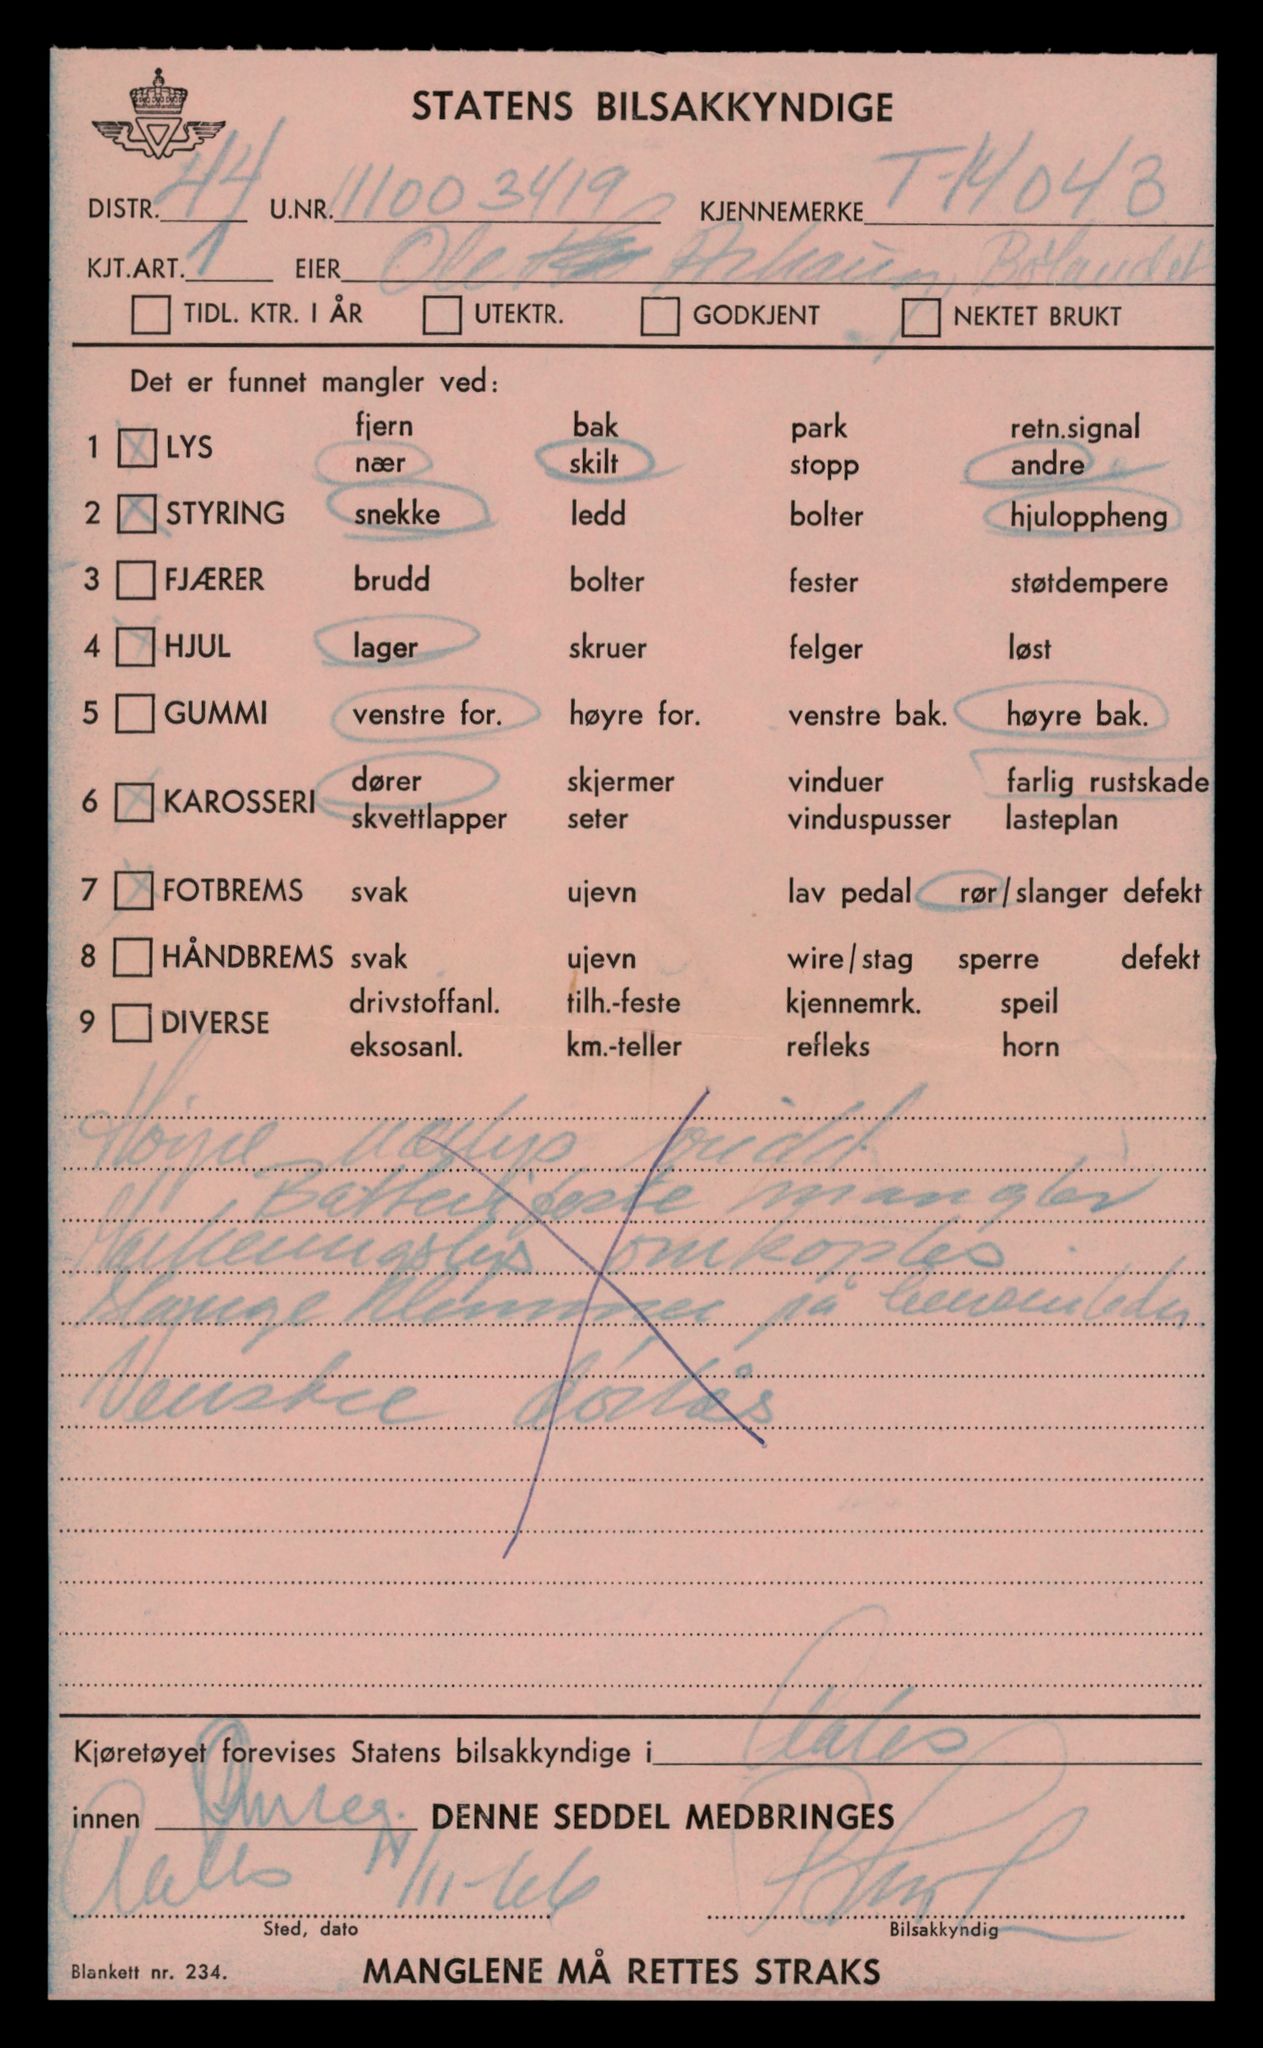 STATENS BILSAKKYNDIGE
DISTR. 44 U.NR. 111003419 KJENNEMERKE T-14043
KJT.ART. 1 EIER Ole
TIDL. KTR. I ÅR UTEKTR. GODKJENT NEKTET BRUKT
Det er funnet mangler ved:
fjern bak park retn.signal
1 LYS
nær skilt stopp andre
2 STYRING snekke ledd bolter hjuloppheng
3 FJÆRER brudd bolter fester støtdempere
4 HJUL lager skruer felger løst
5 GUMMI venstre for. høyre for. venstre bak. høyre bak.
dører skjermer vinduer farlig rustskade
6 KAROSSERI
skvettlapper seter vinduspusser lasteplan
7 FOTBREMS svak ujevn lav pedal rør/slanger defekt
8 HÅNDBREMS svak ujevn wire/stag sperre defekt
drivstoffanl. tilh.-feste kjennemrk. speil
9 DIVERSE
eksosanl. km.-teller refleks horn
Høyre nærlys
Batterifeste mangler
Parkeringslys omkoples.
Slange klemmer på
Venstre dørlås
Kjøretøyet forevises Statens bilsakkyndige i
innen Omreg. DENNE SEDDEL MEDBRINGES
/III-66
Sted, dato Bilsakkyndig
Blankett nr. 234. MANGLENE MÅ RETTES STRAKS